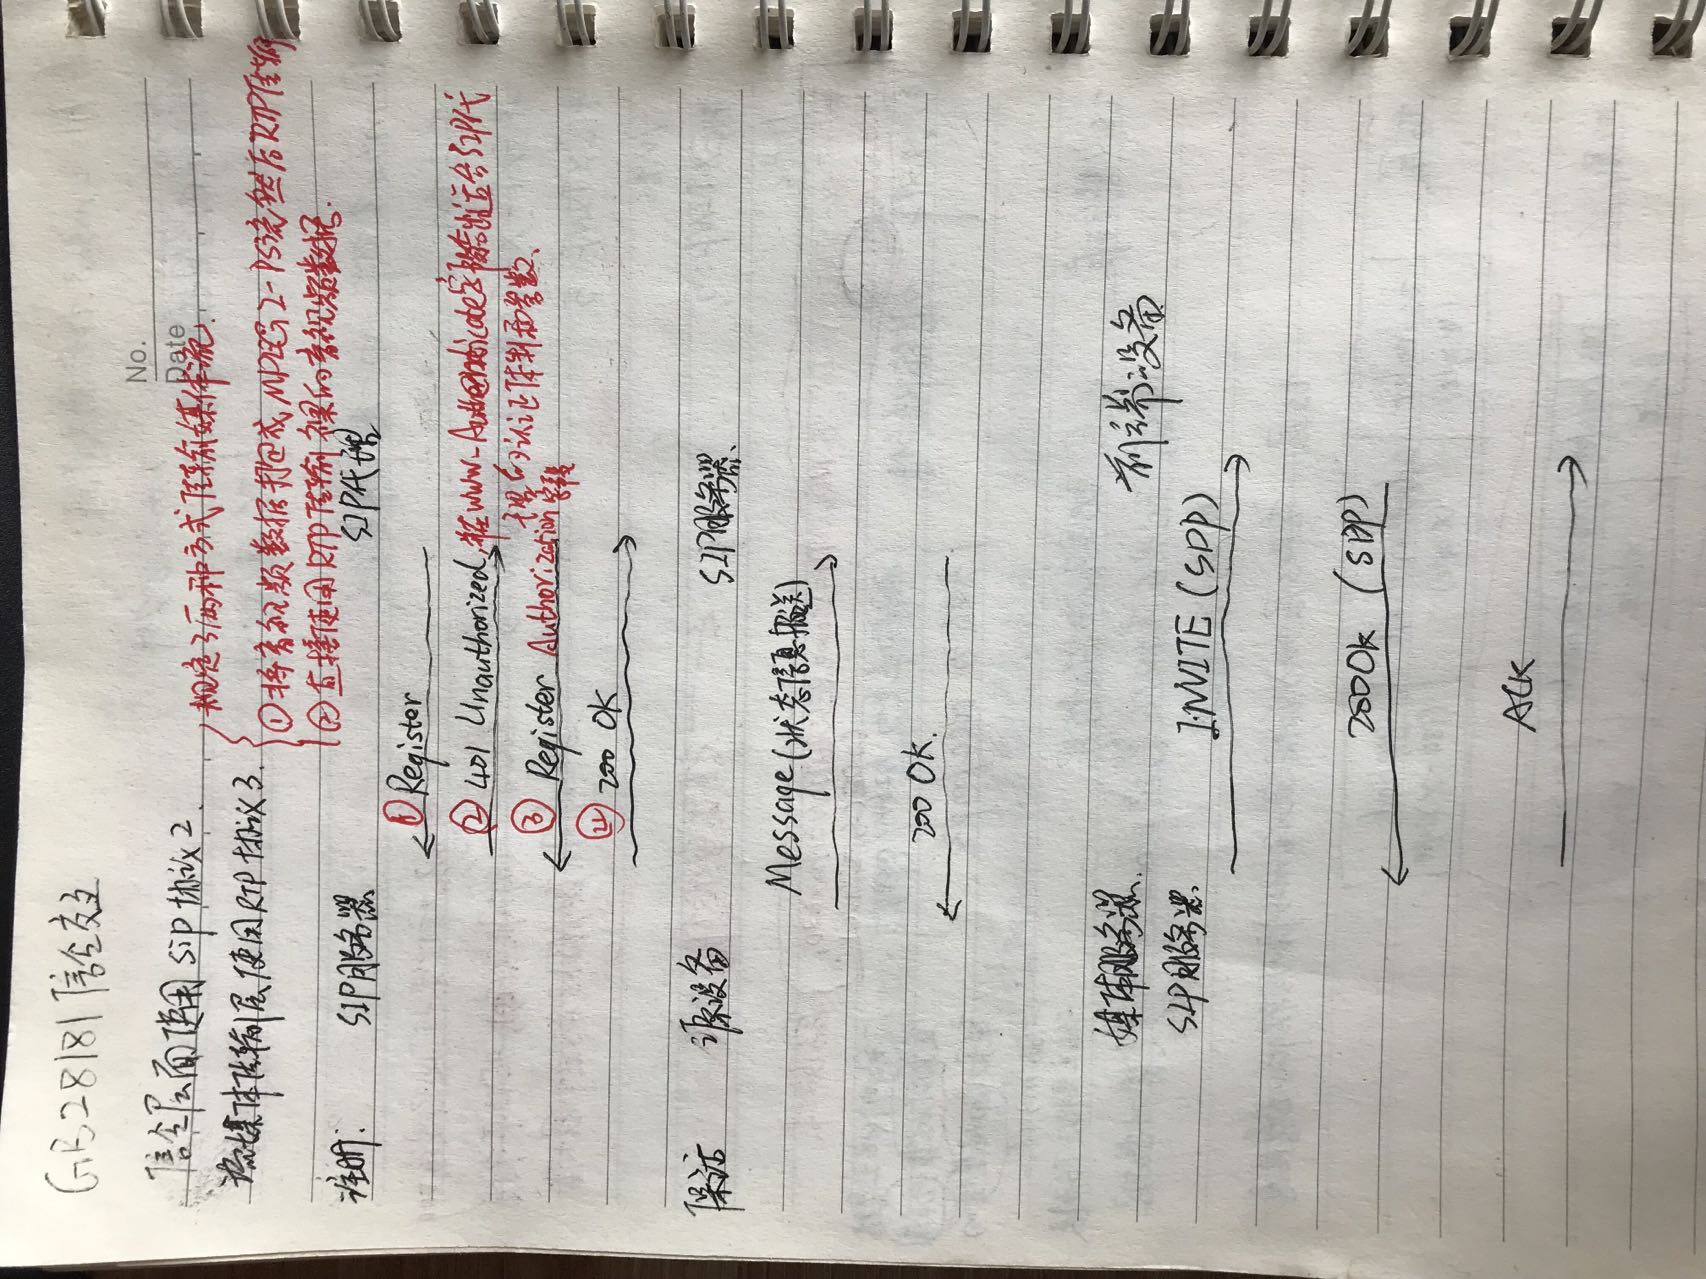 GB28181信令交互
No.
Date
信令层面使用sip协议2.
流媒体传输层使用RTP协议3.
规定了两种方式传输媒体流.
①将音视频数据打包成MPEG2-PS流然后RTP传输
②直接使用RTP传输裸的音视频数据.
注册: SIP服务器 SIP代理
① Register
② 401 Unauthorized,并在www-Authenticate字段给出适合SIP代
理的认证体制和参数、
③ Register Authorization字段
④ 200 OK
保活 源设备 SIP服务器.
Message(状态信息报送)
200 OK.
媒体服务器. 前端设备
SIP服务器
INVITE (SDP)
200 Ok (SDP)
ACK